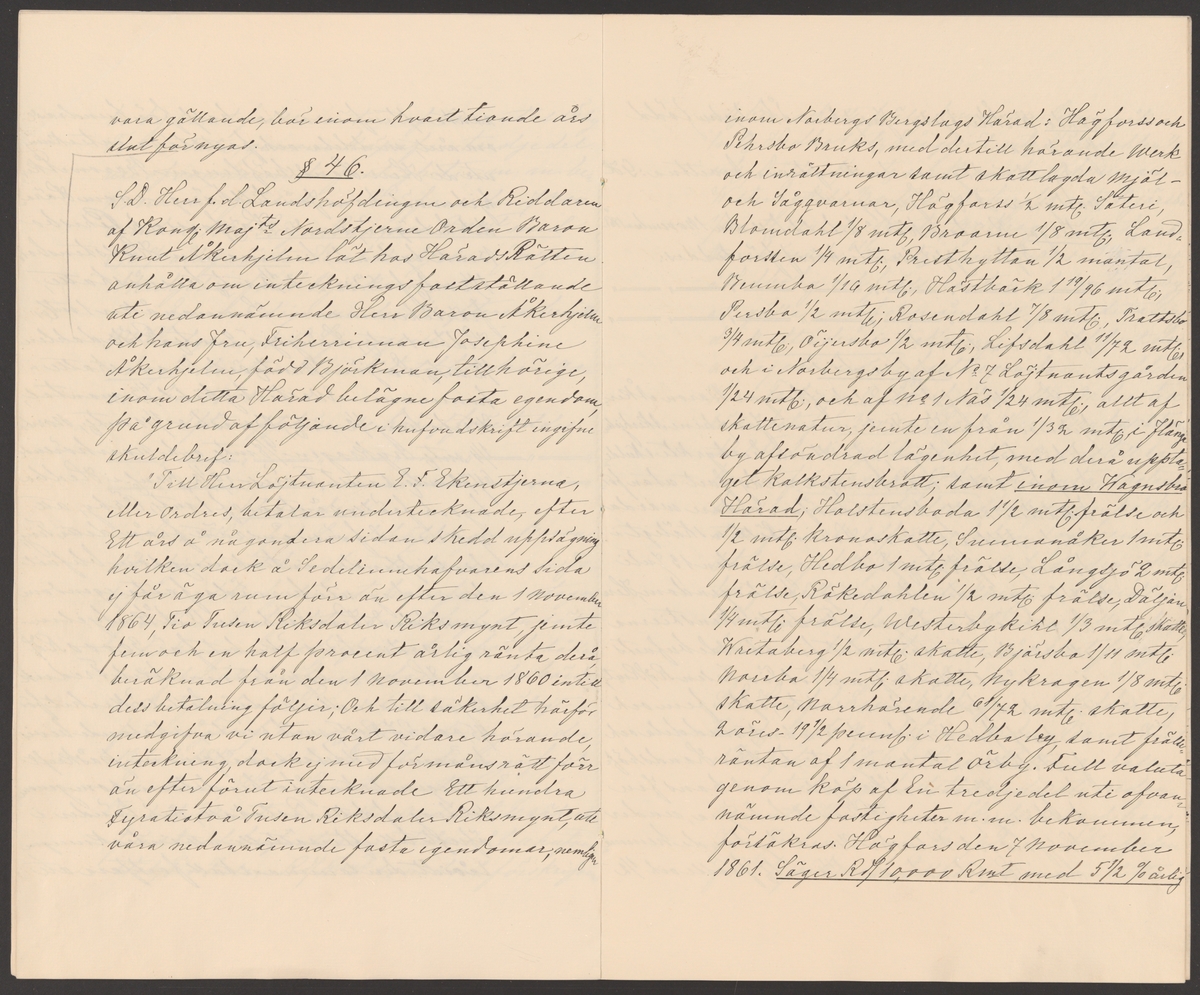 vara gällande, bör inom hvart tionde års
slut förnyas.
§ 46.
S.D. Herr f.d Landshöfdingen och Riddaren
af Kongl Majts Nordstjerne Orden Baron
Knut Åkerhjelm lät hos HäradsRätten
anhålla om inteckningsfastställande
uti nedannämnde Herr Baron Åkerhjelm
och hans fru, Friherrinnan Josephine
Åkerhjelm, född Björkman, tillhörige,
inom detta Härad belägne fasta egendom,
på grund af följande i hufvudskrift ingifne
skuldebref:
"Till Herr Löjtnanten E. F. Ekenstjerna,
eller ordres, betalar undertecknade, efter
Ett års å någondera sidan skedd uppsägning
hvilken dock å Sedelinnehafvarens sida
ej får äga rum förr än efter den 1 November
1864, Tio Tusen Riksdaler Riksmynt, jemte
fem och en half procent årlig ränta derå,
beräknad från den 1 November 1860 intill
dess betalning följer; Och till säkerhet härför
medgifva vi utan vårt vidare hörande,
inteckning, dock ej med förmånsrätt förr
än efter förut intecknade Ett hundra
Fyratiotvå Tusen Riksdaler Riksmynt, uti
våra nedannämnde fasta egendomar, nemligen
inom Norbergs Bergslags Härad: Högforss och
Pehrsbo Bruks, med dertill hörande Werk
och inrättningar samt skattlagda Mjöl-
och Såggvarnar, Högforss 1/2 mtl Säteri,
Blomdahl 1/8 mtl, Broarne 1/8 mtl, Land-
forssen 1/4 mtl, Presthyttan 1/2 mantal,
Bennebo 1/16 mtl, Hästbäck 1 19/96 mtl,
Persbo 1/2 mtl, Rosendahl 7/8 mtl, Trättsbo
3/4 mtl, Öijersbo 1/2 mtl, Lifsdahl 11/72 mtl,
och i Norbergsby af No 7 Löjtnantsgården
1/24 mtl, och af No 1 Näs 1/24 mtl, allt af
skattenatur, jemte en från 1/32 mtl i
by afsöndrad lägenhet, med derå uppta-
get kalkstensbrott; samt inom Wagnsbro
Härad, Holstensboda 1 1/2 mtl frälse och
1/2 mtl kronoskatte, Sunnanåker 1 mtl
frälse, Hedbo 1 mtl frälse, Långsjö 2 mtl
frälse, Rökedahlen 1/2 mtl frälse, Däljan
1/4 mtl frälse, Westerbykihl 1/3 mtl skatte,
Kretaberg 1/2 mtl skatte, Björsbo 1/11 mtl
Norrbo 1/4 mtl skatte, Nykrogen 1/8 mtl
skatte, Norrhörende 61/72 mtl skatte,
2 öres 19 1/2 penni i Hedbo by, samt frälse-
räntan af 1 mantal Örby. Full valuta
genom köp af En tredjedel uti ofvan-
nämnde fastigheter m.m. bekommen,
försäkras. Högfors den 7 November
1861. Säger Rdr 10,000 Rmt med 5 1/2 % årlig